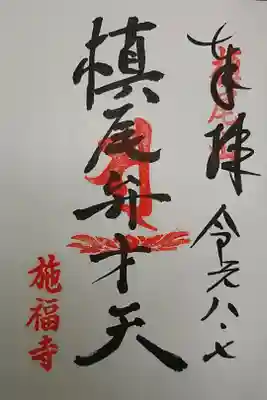 奉拝
令元八・七
槙尾弁才天
施福寺